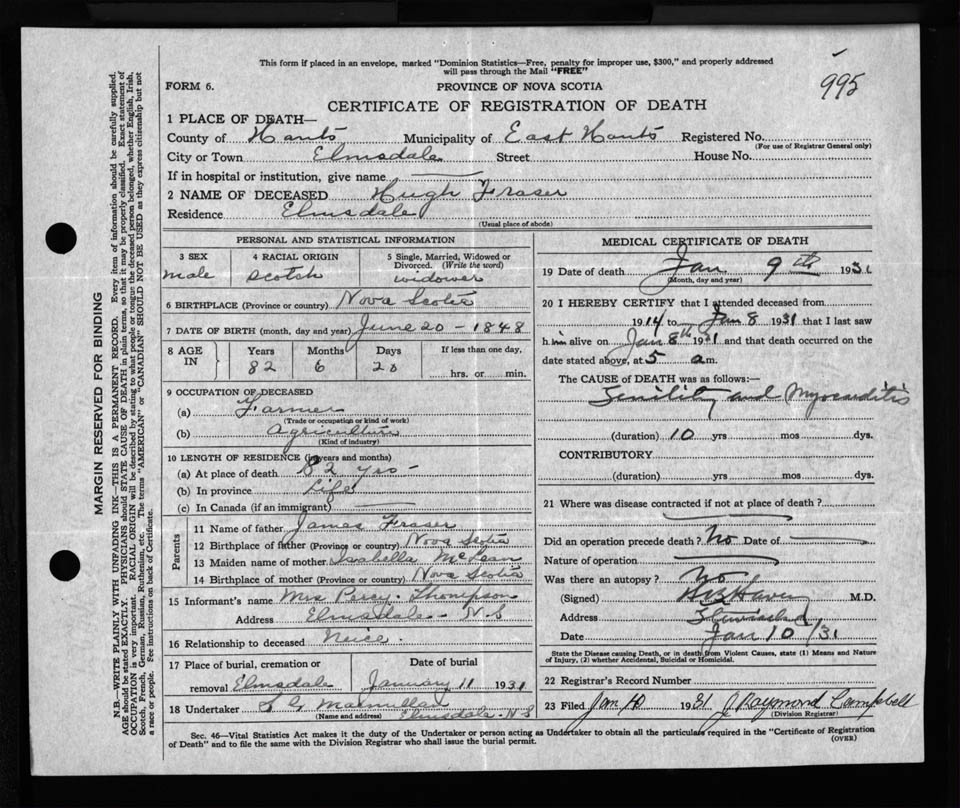 This form if placed in an envelope, marked "Dominion Statistics—Free, penalty for improper use, $300," and properly addressed
will pass through the Mail "FREE"
995
FORM 6.
PROVINCE OF NOVA SCOTIA
CERTIFICATE OF REGISTRATION OF DEATH
1 PLACE OF DEATH—
County of Hants Municipality of East Hants Registered No.
(For use of Registrar General only)
City or Town Elmsdale Street House No.
If in hospital or institution, give name
2 NAME OF DECEASED Hugh Fraser
Residence Elmsdale
(Usual place of abode)
PERSONAL AND STATISTICAL INFORMATION
3 SEX 4 RACIAL ORIGIN 5 Single, Married, Widowed or
Divorced. (Write the word)
male Scotch widower
6 BIRTHPLACE (Province or country) Nova Scotia
7 DATE OF BIRTH (month, day and year) June 20 - 1848
8 AGE IN Years Months Days If less than one day,
82 6 20 hrs. or min.
9 OCCUPATION OF DECEASED
(a) Farmer
(Trade or occupation or kind of work)
(b) Agriculture
(Kind of industry)
10 LENGTH OF RESIDENCE (in years and months)
(a) At place of death 82 yrs -
(b) In province Life
(c) In Canada (if an immigrant)
Parents
11 Name of father James Fraser
12 Birthplace of father (Province or country) Nova Scotia
13 Maiden name of mother Isabella McLean
14 Birthplace of mother (Province or country) Nova Scotia
15 Informant's name Mrs Percy Thompson
Address Elmsdale - N S
16 Relationship to deceased Neice.
17 Place of burial, cremation or Date of burial
removal Elmsdale January 11 1931
18 Undertaker Macmillan
(Name and address) Elmsdale N S
MEDICAL CERTIFICATE OF DEATH
19 Date of death Jan 9th 1931
(Month, day and year)
20 I HEREBY CERTIFY that I attended deceased from
1914 to Jan 8 1931 that I last saw
him alive on Jan 8th 1931 and that death occurred on the
date stated above, at 5 a m.
The CAUSE OF DEATH was as follows:—
Senility and Myocarditis
(duration) 10 yrs mos dys.
CONTRIBUTORY
(duration) yrs mos dys.
21 Where was disease contracted if not at place of death?
Did an operation precede death? No Date of
Nature of operation
Was there an autopsy? No
(Signed) M.D.
Address
Date Jan 10/31
State the Disease causing Death, or in death from Violent Causes, state (1) Means and Nature
of Injury, (2) whether Accidental, Suicidal or Homicidal.
22 Registrar's Record Number
23 Filed Jan 10 1931 J Raymond Campbell
(Division Registrar)
Sec. 46—Vital Statistics Act makes it the duty of the Undertaker or person acting as Undertaker to obtain all the particulars required in the "Certificate of Registration
of Death" and to file the same with the Division Registrar who shall issue the burial permit.
(OVER)
MARGIN RESERVED FOR BINDING
N.B.—WRITE PLAINLY WITH UNFADING INK—THIS IS A PERMANENT RECORD. Every item of information should be carefully supplied.
AGE should be stated EXACTLY. PHYSICIANS should STATE CAUSE OF DEATH in plain terms, so that it may be properly classified. Exact statement of
OCCUPATION is very important. RACIAL ORIGIN will be described by stating to what people or tongue the deceased person belonged, whether English, Irish,
Scotch, French, German, Russian, Ruthenian, etc. The terms "AMERICAN" or "CANADIAN" SHOULD NOT BE USED as they express citizenship but not
a race or people. Fee instructions on back of Certificate.